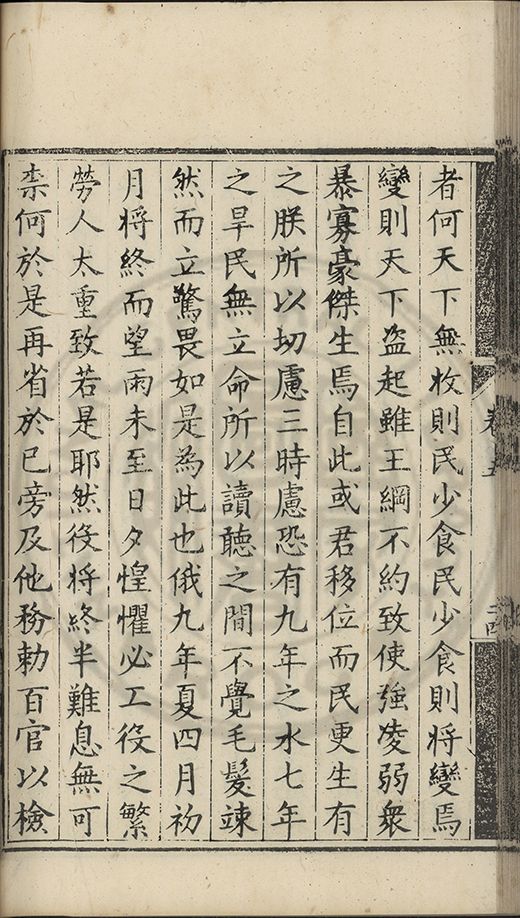 者何天下無收則民少食民少食則将變焉
變則天下盗起雖王綱不約致使強凌弱衆
暴寡豪傑生焉自此或君移位而民更生有
之朕所以切慮三時慮恐有九年之水七年
之旱民無立命所以讀聽之間不覺毛髮竦
然而立驚畏如是為此也俄九年夏四月初
月将終而望雨未至日夕惶懼必工役之繁
勞人太重致若是耶然役将終半難息無可
柰何於是再省於巳旁及他務勑百官以檢
卷十五
二四